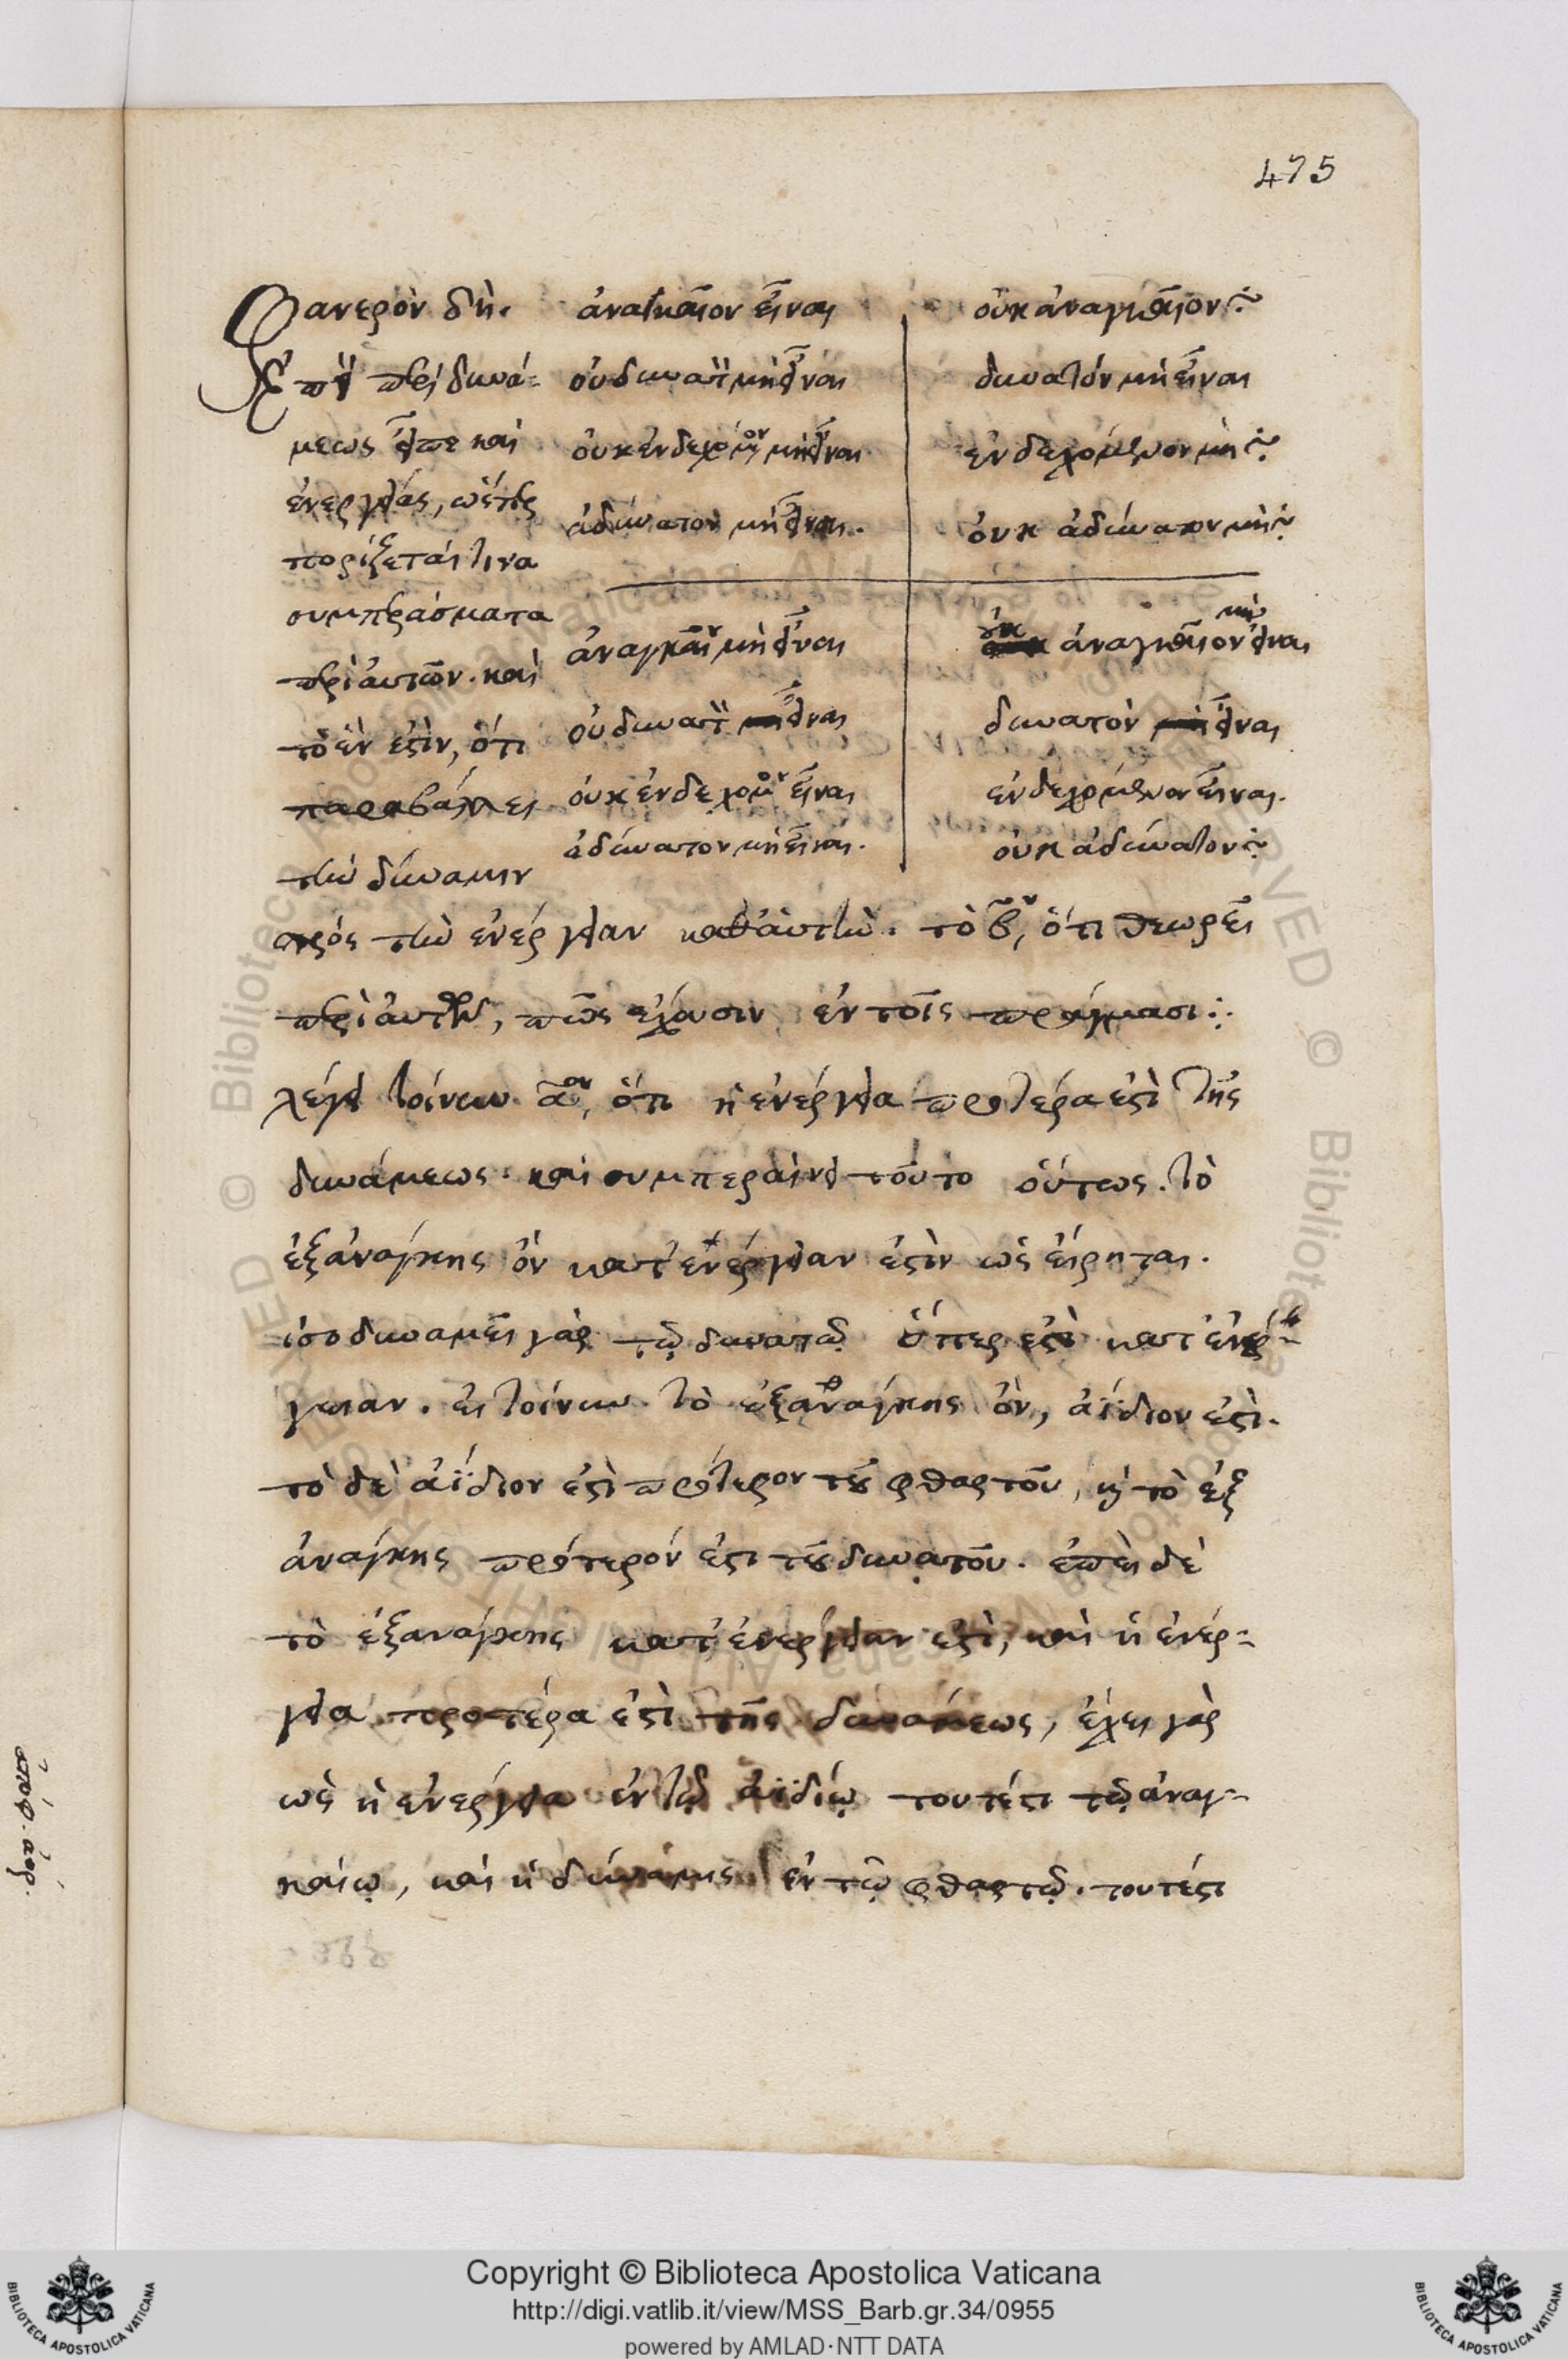 475
Φανερὸν δή.
Ἐπεὶ περὶ δυνά-
μεως εἶπε καὶ
ἐνεργείας, ὥσπερ
πορίζεταί τινα
συμπεράσματα
περὶ αὐτῶν. καὶ
τὸ ἕν ἐστιν, ὅτι
παραβάλλει
τὴν δύναμιν
ἀναγκαῖον εἶναι
οὐ δυνατὸν μὴ εἶναι
οὐκ ἐνδεχόμενον μὴ εἶναι
ἀδύνατον μὴ εἶναι.
ἀναγκαῖον μὴ εἶναι
οὐ δυνατὸν εἶναι
οὐκ ἐνδεχόμενον εἶναι
ἀδύνατον μὴ εἶναι.
οὐκ ἀναγκαῖον εἶναι
δυνατὸν μὴ εἶναι
ἐνδεχόμενον μὴ εἶναι
οὐκ ἀδύνατον μὴ εἶναι
οὐκ ἀναγκαῖον μὴ εἶναι
δυνατὸν εἶναι
ἐνδεχόμενον εἶναι.
οὐκ ἀδύνατον εἶναι
πρὸς τὴν ἐνέργειαν καθ' αὑτήν. τὸ βον, ὅτι θεωρεῖ
περὶ αὐτῶν, πῶς ἔχουσιν ἐν τοῖς πράγμασι:
λέγει τοίνυν αον, ὅτι ἡ ἐνέργεια προτέρα ἐστὶ τῆς
δυνάμεως. καὶ συμπεραίνει τοῦτο οὕτως. τὸ
ἐξανάγκης ὂν κατ' ἐνέργειαν ἐστὶν ὡς εἴρηται.
ἰσοδυναμεῖ γὰρ τῷ δυνατῷ ὅπερ ἐστὶ κατ' ἐνέρ-
γειαν. εἰ τοίνυν τὸ ἐξανάγκης ὂν, ἀΐδιον ἐστὶ.
τὸ δὲ ἀΐδιον ἐστὶ πρότερον τοῦ φθαρτοῦ, καὶ τὸ ἐξ
ἀνάγκης πρότερόν ἐστι τοῦ δυνατοῦ. ἐπεὶ δὲ
τὸ ἐξανάγκης κατ' ἐνέργειαν ἐστὶ, καὶ ἡ ἐνέρ-
γεια προτέρα ἐστὶ τῆς δυνάμεως, ἔχει γὰρ
ὡς ἡ ἐνέργεια ἐν τῷ ἀϊδίῳ τουτέστι τῷ ἀναγ-
καίῳ, καὶ ἡ δύναμις ἐν τῷ φθαρτῷ. τουτέστι
Copyright © Biblioteca Apostolica Vaticana
http://digi.vatlib.it/view/MSS_Barb.gr.34/0955
powered by AMLAD·NTT DATA